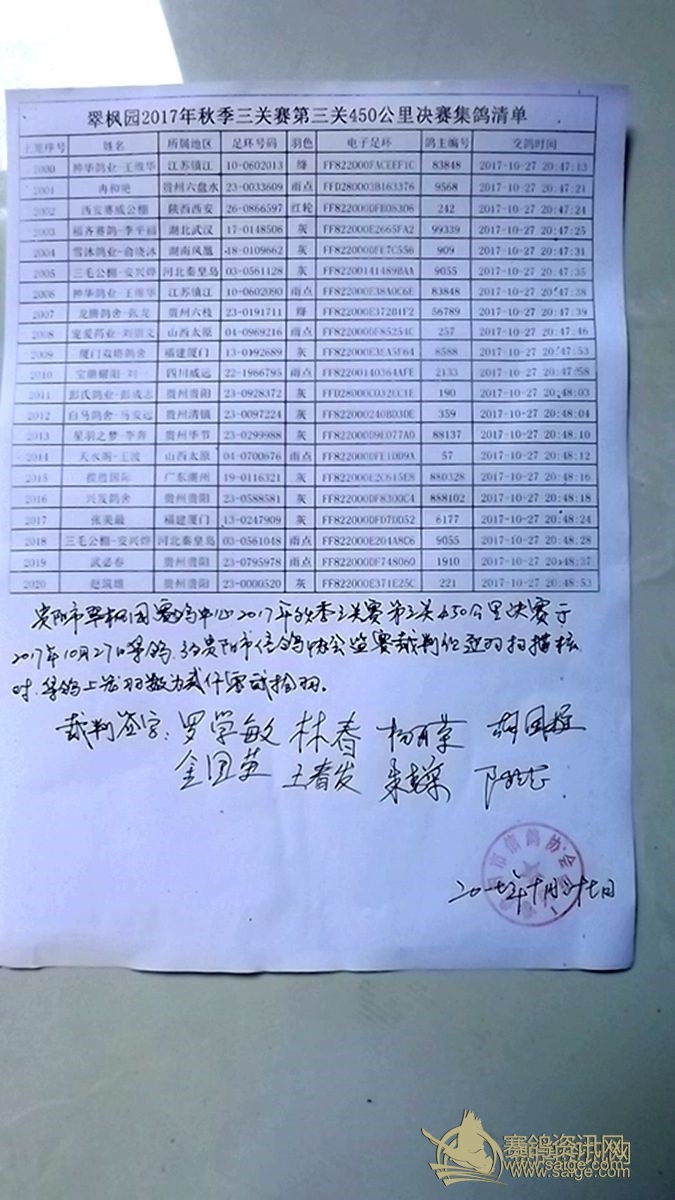 翠枫园2017年秋季三关赛第三关450公里决赛集鸽清单
上笼序号 姓名 所属地区 足环号码 羽色 电子足环 鸽主编号 交鸽时间
2000 神华鸽业-王维华 江苏镇江 10-0602013 绛 FF822000FACEEF1C 83848 2017-10-27 20:47:13
2001 冉和艳 贵州六盘水 23-0033609 雨点 FFD280003B163376 9568 2017-10-27 20:47:21
2002 西安赛威公棚 陕西西安 26-0866597 红轮 FF822000DFB06306 242 2017-10-27 20:47:24
2003 福齐赛鸽-李平福 湖北武汉 17-0148506 灰 FF822000E2665FA2 99339 2017-10-27 20:47:25
2004 雪沐鸽业-俞晓沐 湖南凤凰 18-0109662 灰 FF822000DFE7C556 909 2017-10-27 20:47:31
2005 三毛公棚-安兴烨 河北秦皇岛 03-0561128 灰 FF82200141489BAA 9055 2017-10-27 20:47:35
2006 神华鸽业-王维华 江苏镇江 10-0602090 雨点 FF822000E38A0C6E 83848 2017-10-27 20:47:38
2007 龙腾鸽舍-张龙 贵州六枝 23-0191711 绛 FF822000E372B1F2 56789 2017-10-27 20:47:39
2008 宠爱药业-刘崇义 山西太原 04-0969216 雨点 FF822000DF85254C 257 2017-10-27 20:47:46
2009 厦门双塔鸽舍 福建厦门 13-0192689 灰 FF822000E3EA5F64 8588 2017-10-27 20:47:53
2010 宝鼎耀阳-刘一 四川威远 22-1966795 雨点 FF82200140364AFE 2133 2017-10-27 20:47:58
2011 彭氏鸽业-彭成志 贵州贵阳 23-0928372 灰 FFD28000C032EC1E 190 2017-10-27 20:48:03
2012 白马鸽舍-马安远 贵州清镇 23-0097224 灰 FF8220000240B03DE 359 2017-10-27 20:48:04
2013 星羽之梦-李奔 贵州毕节 23-0299988 灰 FF822000DD9E077A0 88137 2017-10-27 20:48:10
2014 天水阁-王波 山西太原 04-0700676 雨点 FF822000DFE1DD9A 57 2017-10-27 20:48:12
2015 国际 广东潮州 19-0116321 灰 FF822000E2C615E8 880328 2017-10-27 20:48:16
2016 兴发鸽舍 贵州贵阳 23-0588581 灰 FF822000DF8300C4 888102 2017-10-27 20:48:18
2017 张美最 福建厦门 13-0247909 灰 FF822000DFD7DD52 6177 2017-10-27 20:48:24
2018 三毛公棚-安兴烨 河北秦皇岛 03-0561048 雨点 FF822000E204A8C6 9055 2017-10-27 20:48:28
2019 武必春 贵州贵阳 23-0795978 雨点 FF822000DF748060 1910 2017-10-27 20:48:37
2020 赵筑雄 23-0000520 灰 FF822000E371E25C 221 2017-10-27 20:48:53
贵阳市翠枫园赛鸽中心2017年秋季三关赛第三关450公里决赛于
2017年10月27日集鸽,经贵阳市信鸽协会监赛裁判位逐羽扫描核
对,集鸽上笼羽数为贰仟零贰拾羽。
裁判签字:罗学敏 林春 胡国
王春发
市信鸽协会
二〇一七年十月廿七日
赛鸽资讯网
www.saige.com